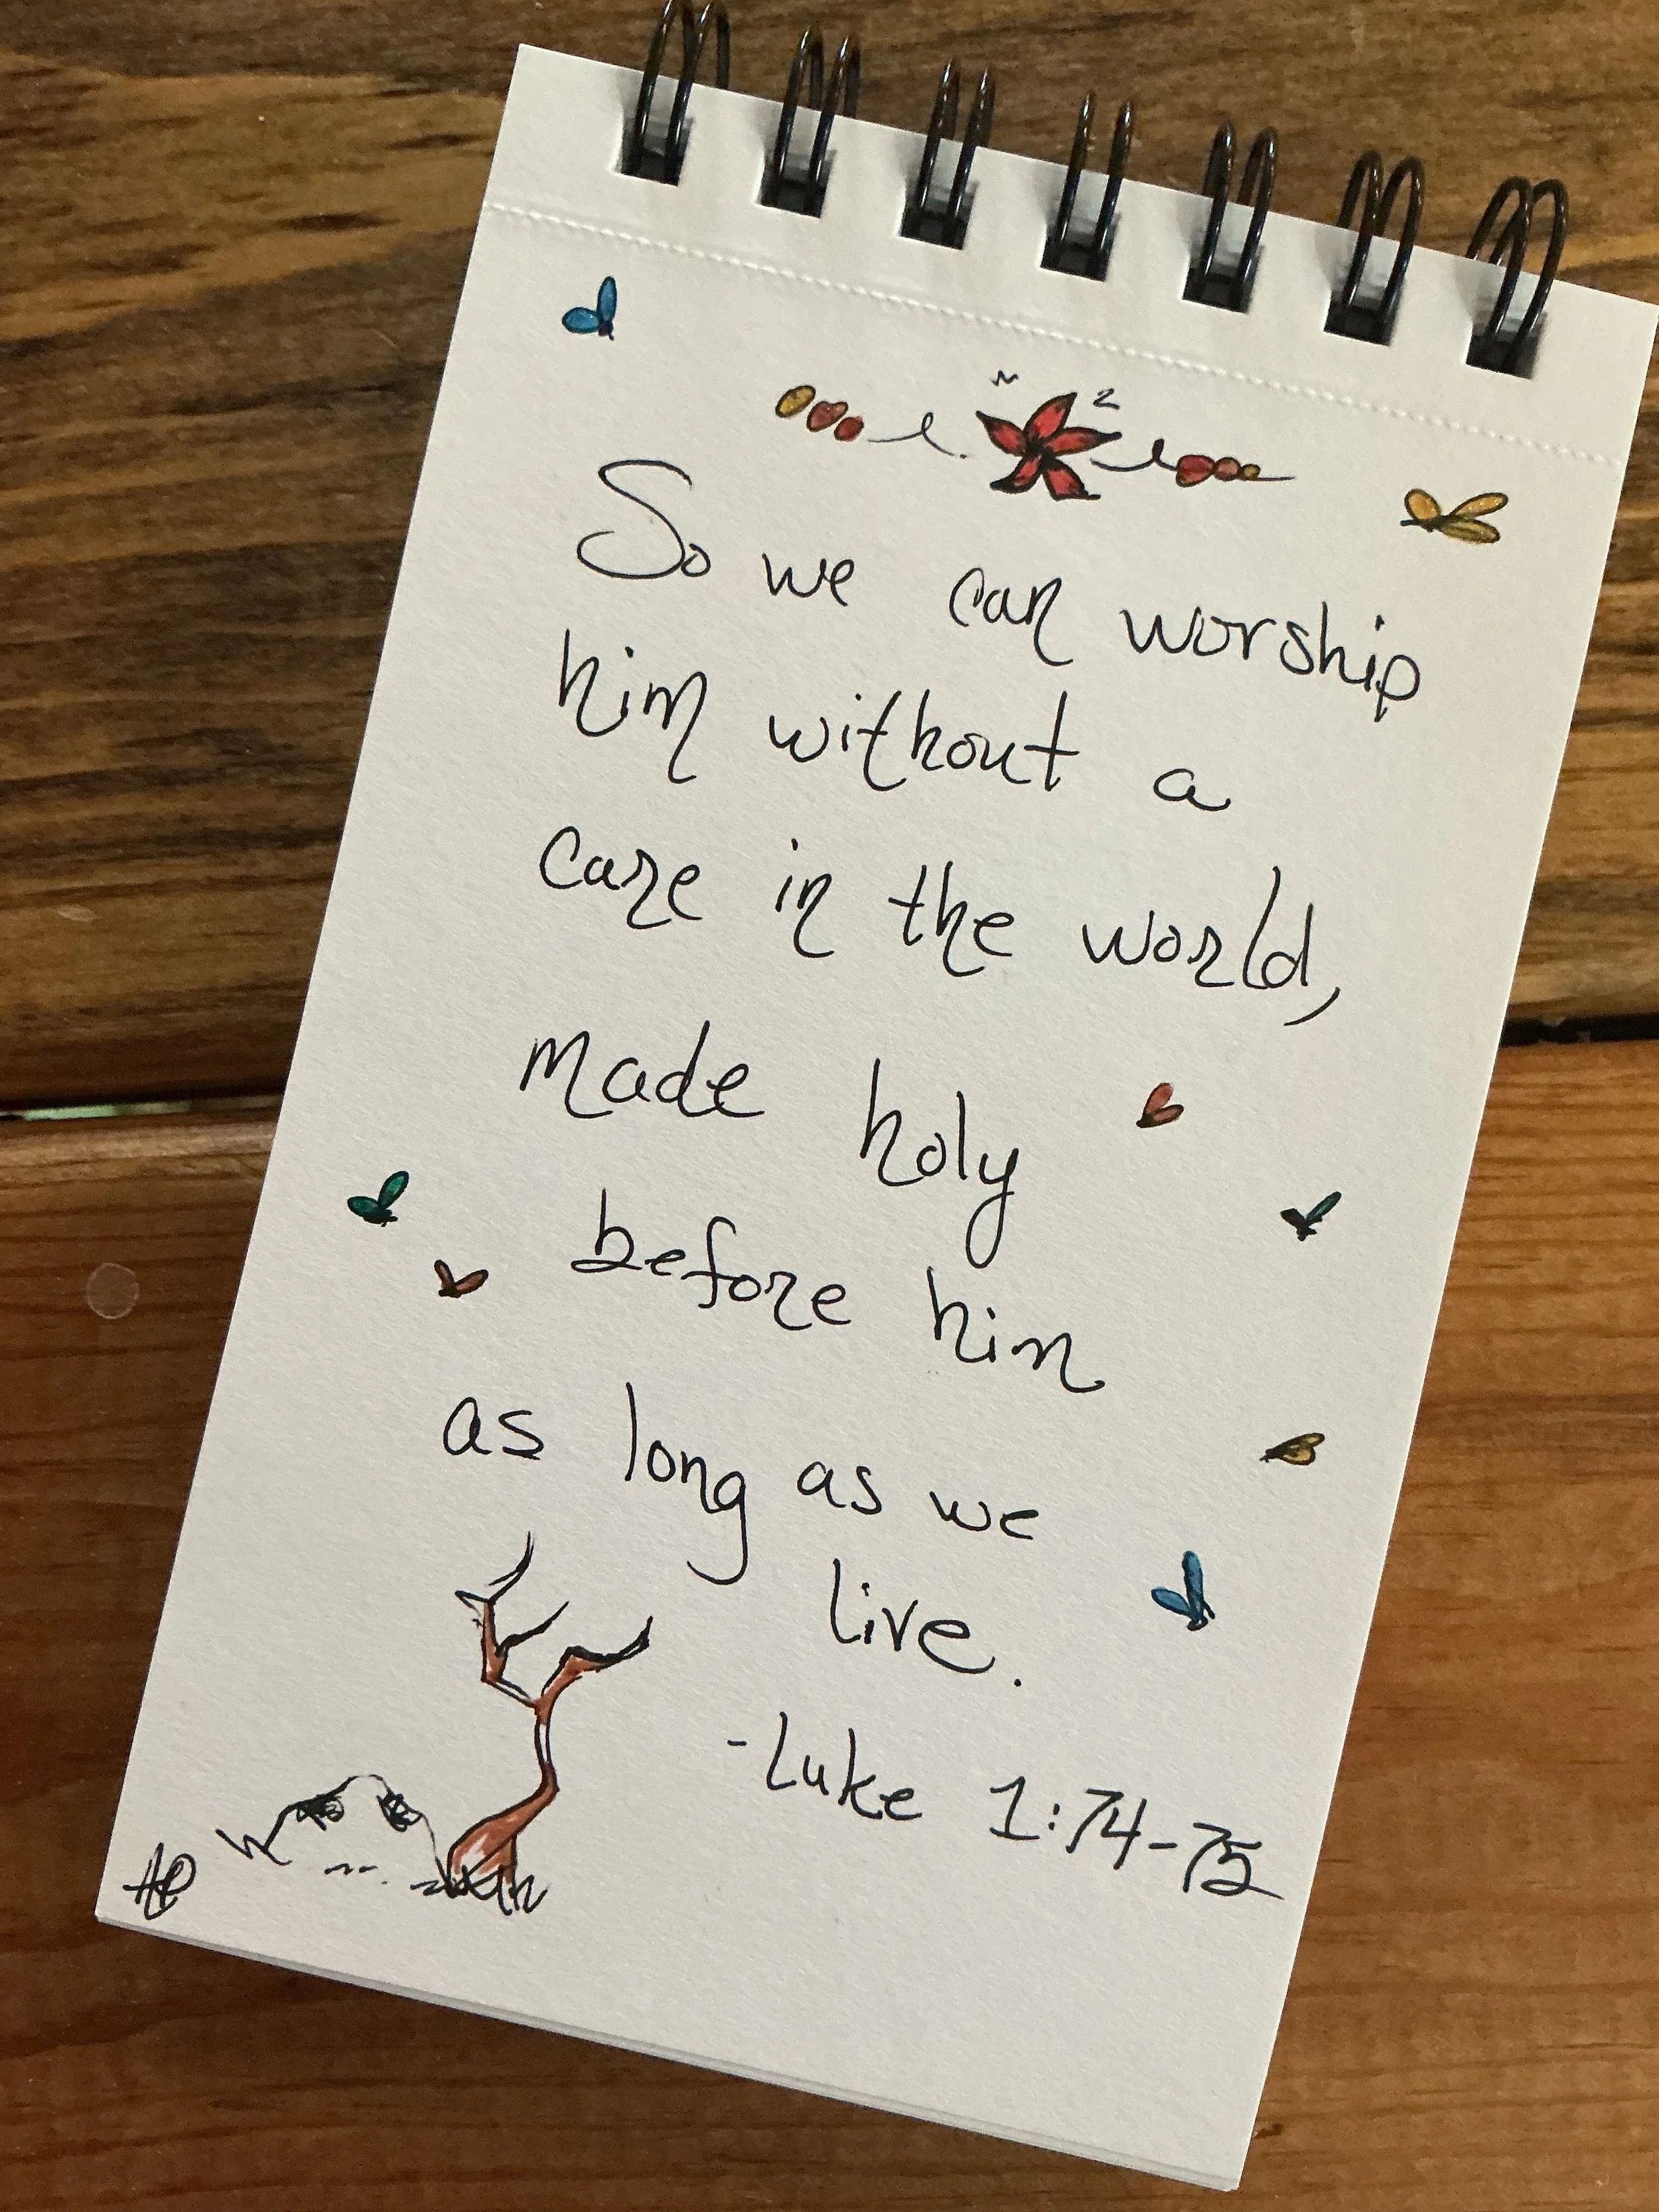 So we can worship
him without a
care in the world,
made holy
before him
as long as we
live.
-Luke 1:74-75